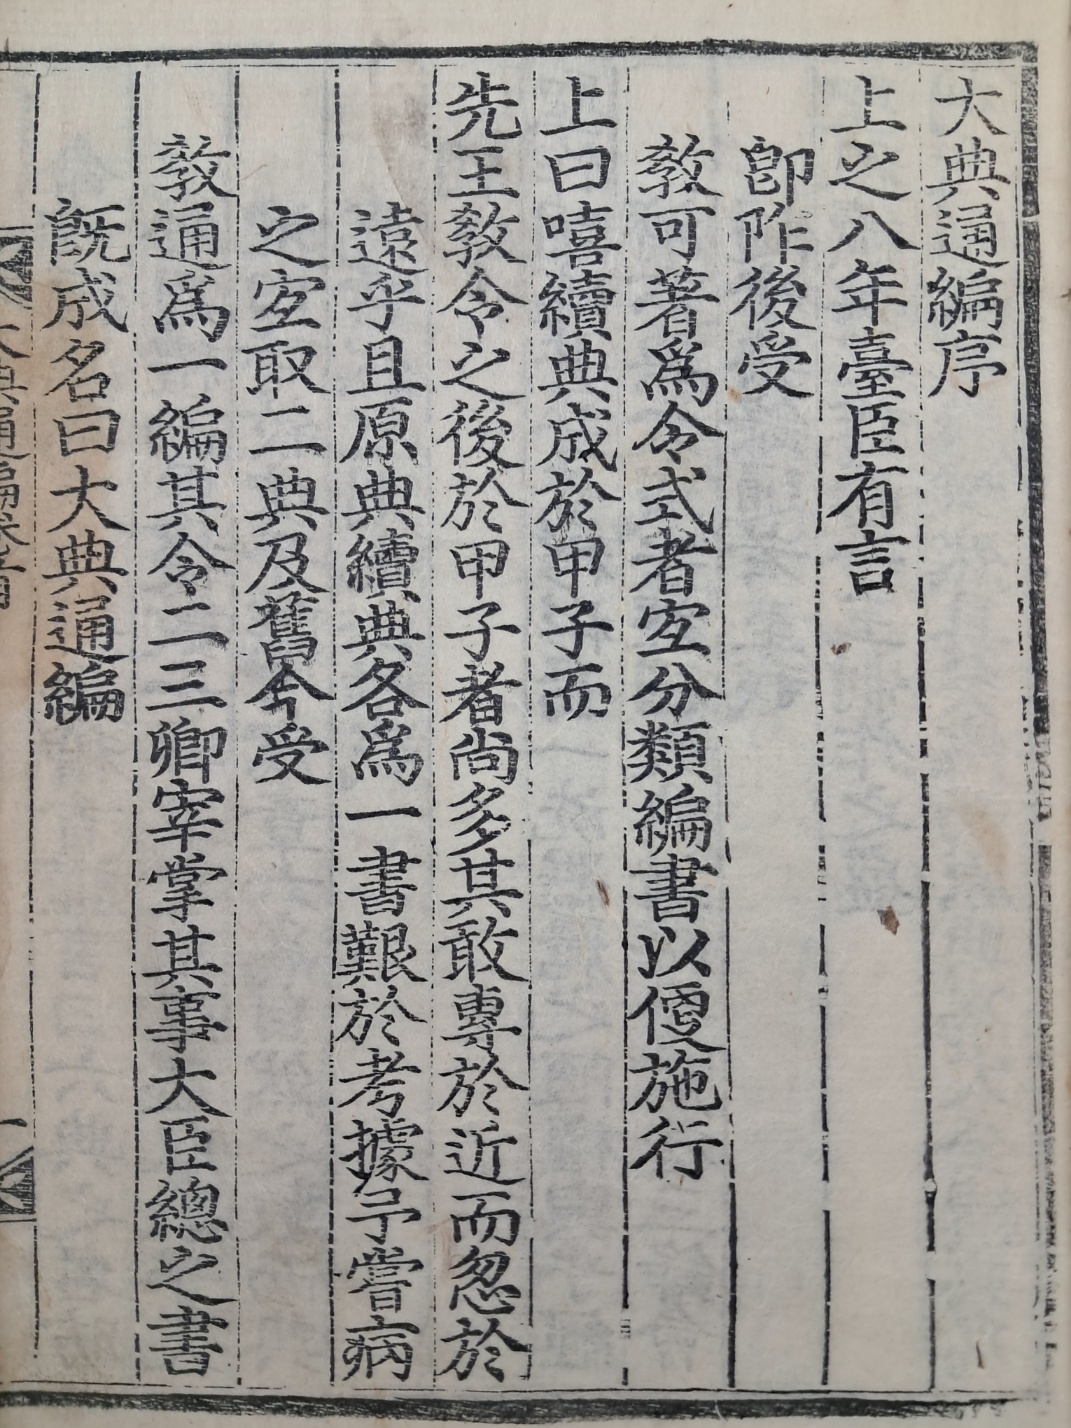 大典通編序
上之八年臺臣有言
卽阼後受
敎可著爲令式者宜分類編書以便施行
上曰嘻續典成於甲子而
先王敎令之後於甲子者尙多其敢專於近而忽於
遠乎且原典續典各爲一書艱於考據予嘗病
之宜取二典及舊今受
敎通爲一編其令二三卿宰掌其事大臣總之書
旣成名曰大典通編
大典通編卷首
一